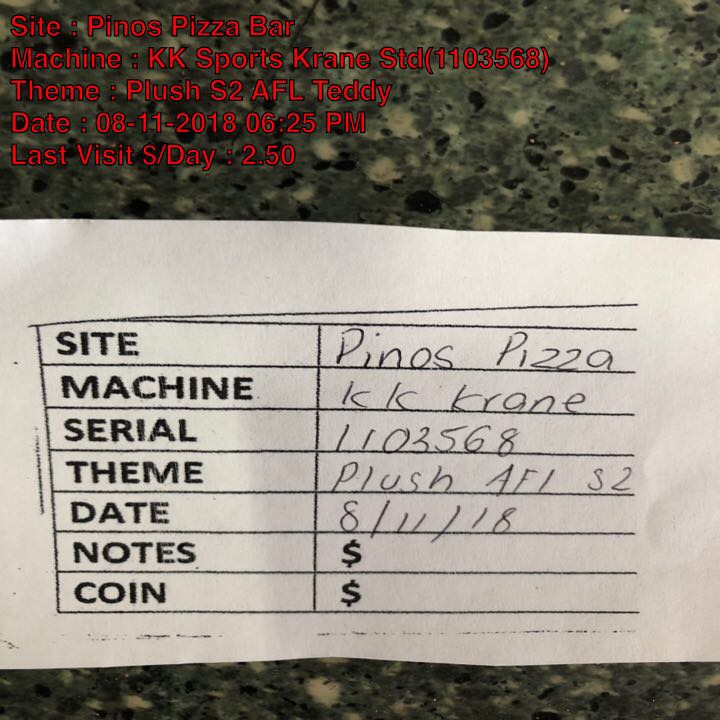 Site : Pinos Pizza Bar
Machine : KK Sports Krane Std(1103568)
Theme : Plush S2 AFL Teddy
Date : 08-11-2018 06:25 PM
Last Visit $/Day : 2.50
SITE Pinos Pizza
MACHINE KK Krane
SERIAL 1103568
THEME Plush AFl S2
DATE 8/11/18
NOTES $
COIN $